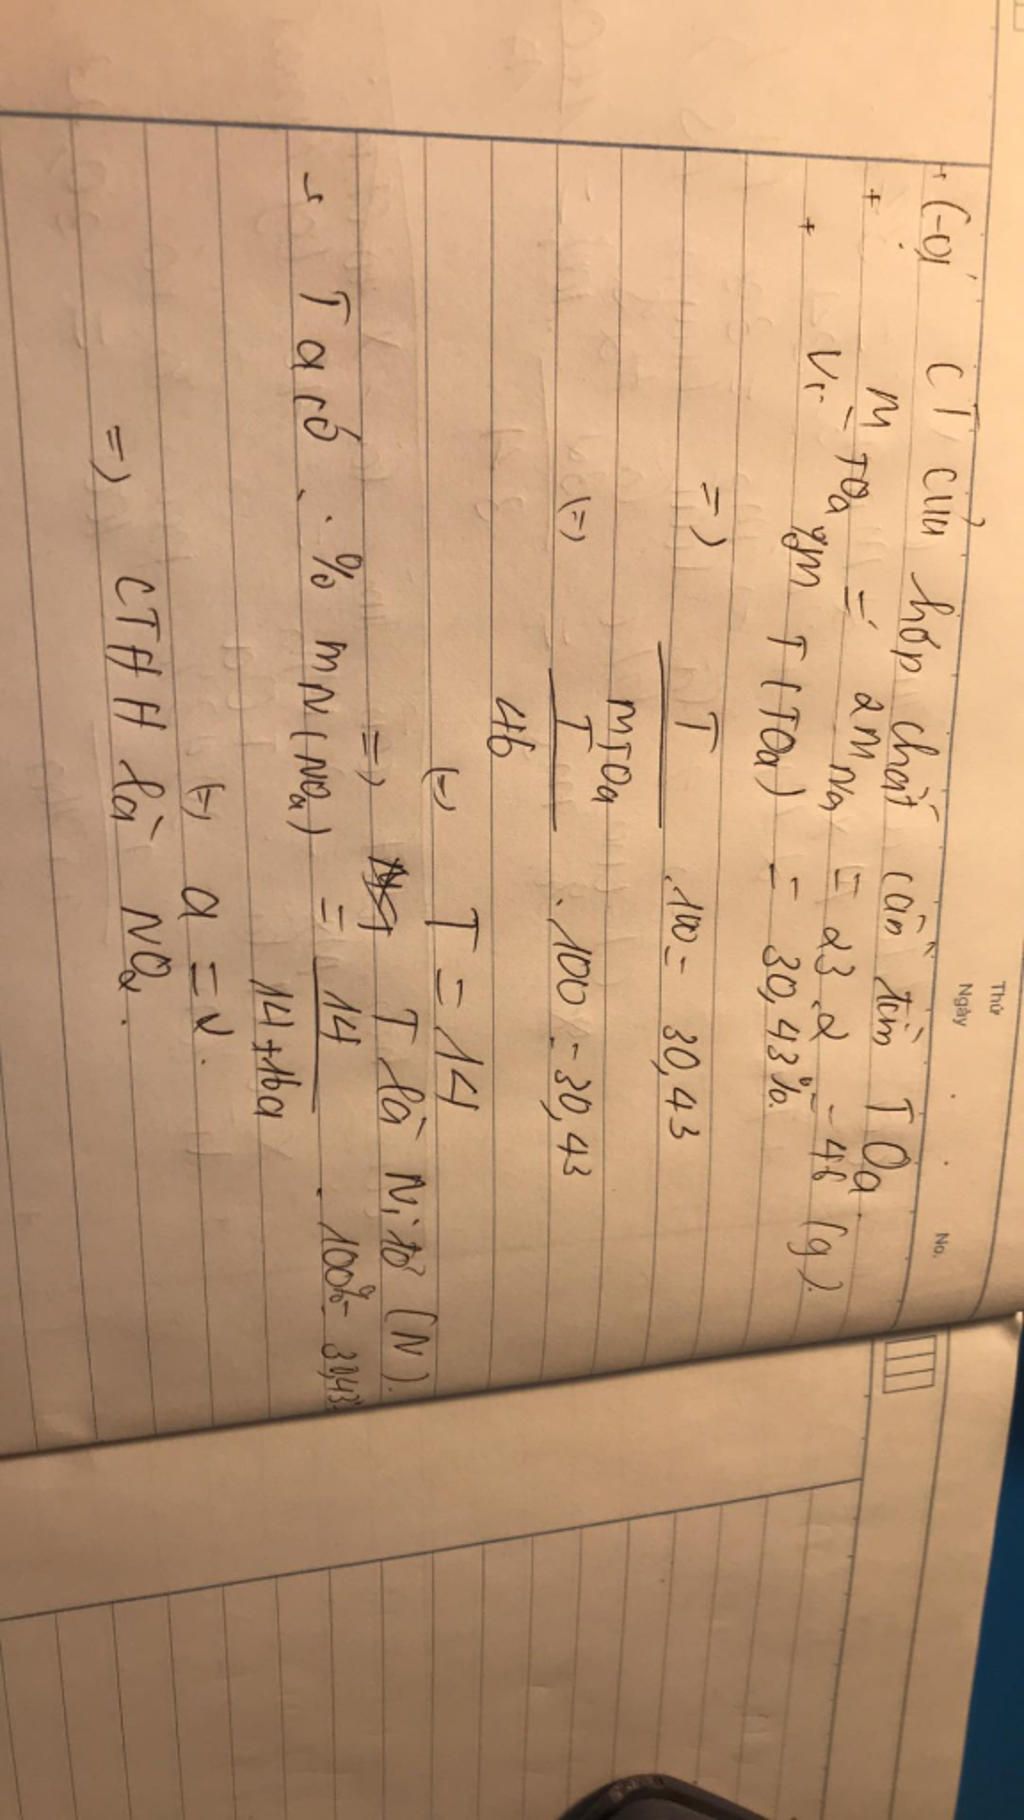 Thứ
Ngày
No.
+ Gọi CT của hợp chất cần tìm TOa.
+ mTOa = 2mNa = 23.2 = 46 (g).
+ Vì %m T(TOa) = 30,43%.
=> T/mTOa .100 = 30,43
(=) T/46 .100 = 30,43
(=) T = 14
=> T là Nitơ (N).
+ Ta có: %mN(NOa) = 14/14+16a . 100% = 30,43
(=) a = 2.
=> CTHH là NO2.